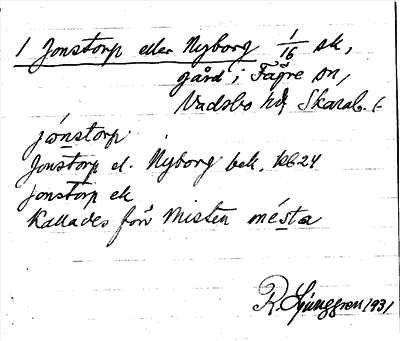 1 Jonstorp eller Nyborg 1/16 sk,
gård i Fägre sn,
Vadsbo hd Skarab. l.
jónstorp
Jonstorp el. Nyborg bek. RB 24
Jonstorp ek
Kallades förr Misten mésta
R. Ljunggren 1931